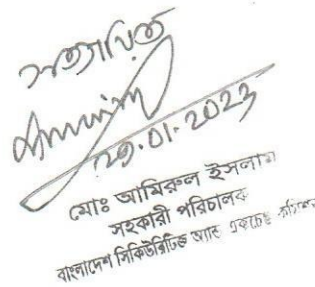 সত্যায়িত
29.01.2023
মোঃ আমিরুল ইসলাম
সহকারী পরিচালক
বাংলাদেশ সিকিউরিটিজ অ্যান্ড এক্সচেঞ্জ কমিশন